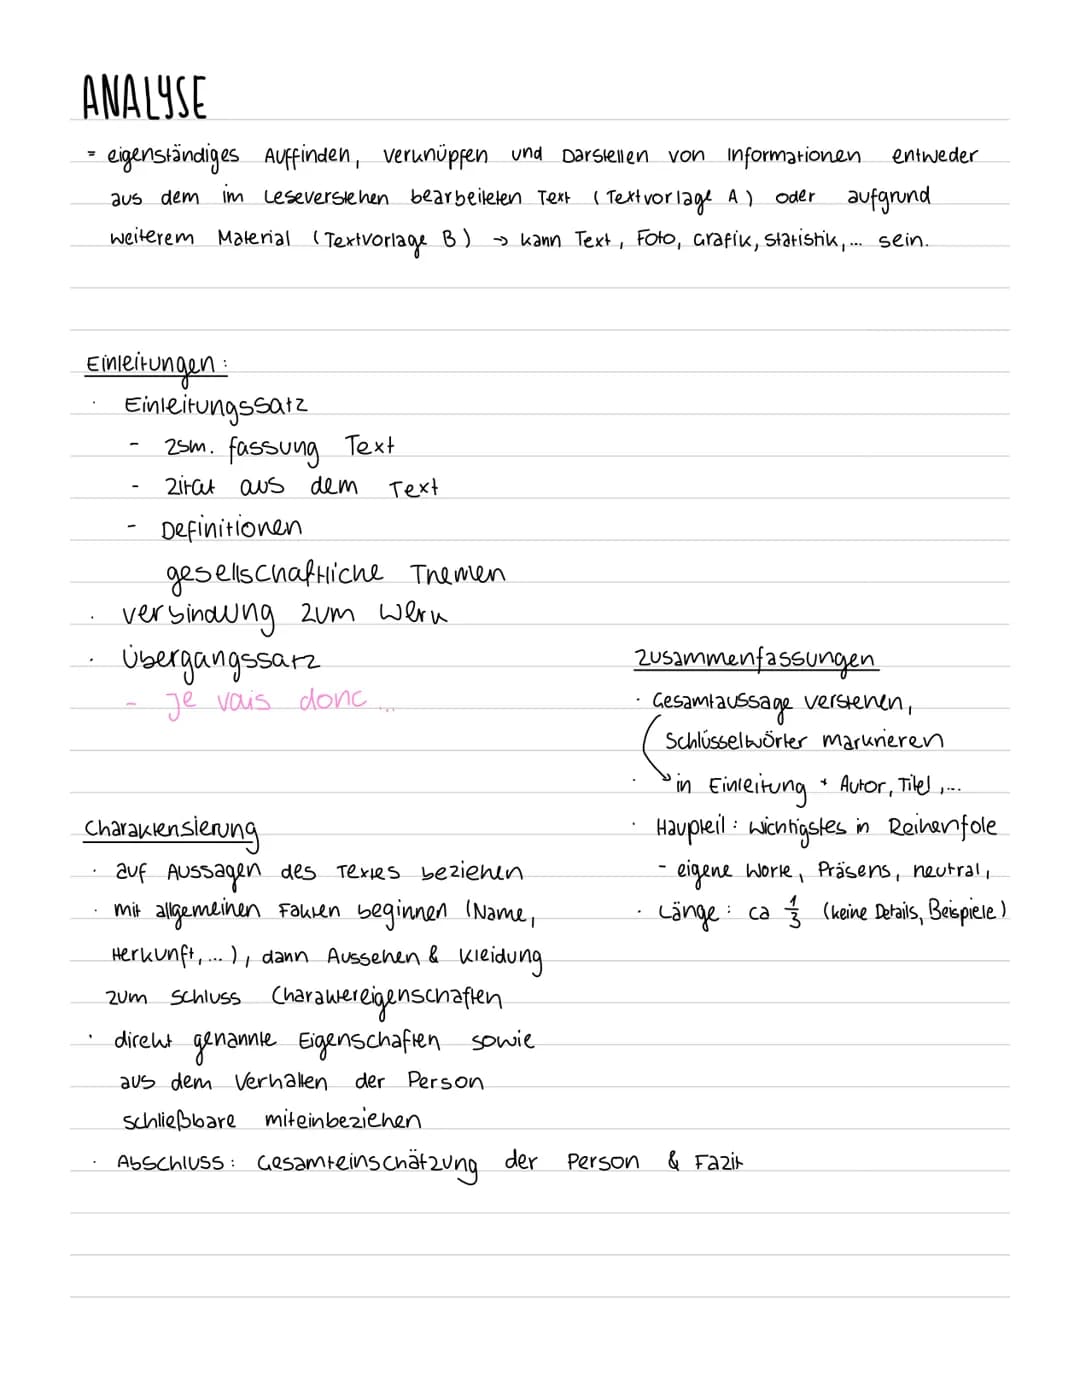 ANALYSE
= eigenständiges Auffinden, verknüpfen und Darstellen von Informationen entweder
aus dem im Leseverstehen bearbeiteten Text (Textvorlage A) oder aufgrund
weiterem Material (Textvorlage B) → kann Text, Foto, Grafik, Statistik,... sein.
Einleitungen:
· Einleitungssatz
- zsm. fassung Text
- Zitat aus dem Text
- Definitionen
gesellschaftliche Themen
· verbindung zum Werk
· Übergangssatz
- Je vais donc ...
Charaktensierung
· auf Aussagen des Textes beziehen
· mit allgemeinen Fakten beginnen (Name,
Herkunft, ...), dann Aussehen & Kleidung
zum Schluss Charaktereigenschaften
· direkt genannte Eigenschaften sowie
aus dem Verhalten der Person
schließbare miteinbeziehen
· Abschluss: Gesamteinschätzung der Person & Fazit
Zusammenfassungen
· Gesamtaussage verstehen,
Schlüsselwörter markieren
· → in Einleitung + Autor, Titel,...
· Haupteil: wichtigstes in Reihenfole
- eigene Worte, Präsens, neutral,
· Länge: ca 1/3 (keine Details, Beispiele)